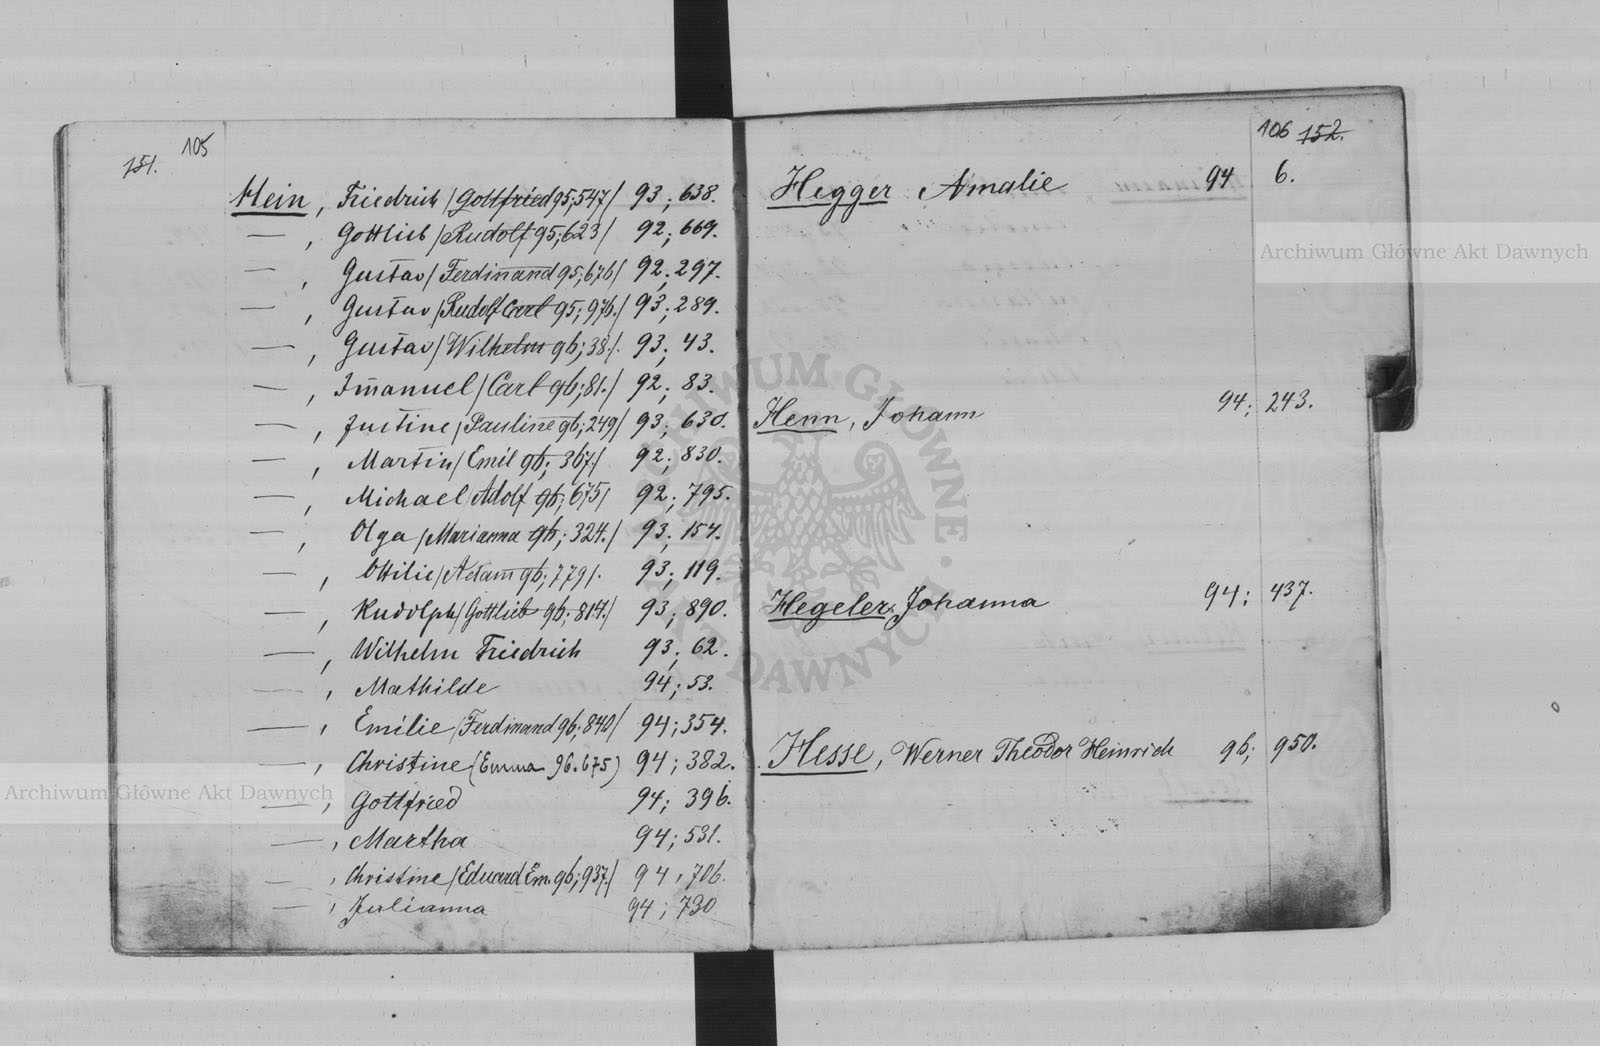 151. 105
Hein, Friedrich /Gottfried 95;547/ 93; 638.
— , Gottlieb /Rudolf 95;623/ 92; 669.
— , Gustav /Ferdinand 95;676/ 92; 297.
— , Gustav /Rudolf Carl 95; 976./ 93; 289.
— , Gustav /Wilhelm 96; 38./. 93; 43.
— , Imanuel /Carl 96;81./ 92; 83.
— , Justine /Pauline 96;249/ 93; 630.
— , Martin /Emil 96; 367./ 92; 830.
— , Michael /Adolf 96; 675/ 92; 795.
— , Olga /Marianna 96; 324./ 93; 154.
— , Ottilie /Adam 96; 779/. 93; 119.
— , Rudolph /Gottlieb 96; 814./ 93; 890.
— , Wilhelm Friedrich 93; 62.
— , Mathilde 94; 53.
— , Emilie /Ferdinand 96; 840/ 94; 354.
— , Christine (Emma 96. 675) 94; 382.
— , Gottfried 94; 396.
— , Martha 94; 531.
— , Christine /Eduard Em. 96; 937./ 94, 706.
— , Julianna 94; 730
106 152.
Hegger Amalie 94 6.
Henn, Johann 94; 243.
Hegeler, Johanna 94; 437.
Hesse, Werner Theodor Heinrich 96; 950.
Archiwum Główne Akt Dawnych
Archiwum Główne Akt Dawnych
Archiwum Główne Akt Dawnych
ARCHIWUM GŁÓWNE AKT DAWNYCH